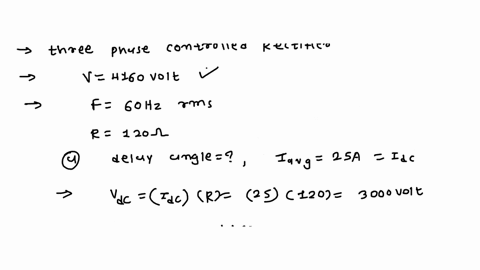 → three phase controlled Rectifier
→ V = 4160 volt ✓
→ F = 60Hz rms
R = 120Ω
(a) delay angle = ?, Iavg = 25A = Idc
→ Vdc = (Idc) (R) = (25) (120) = 3000 volt